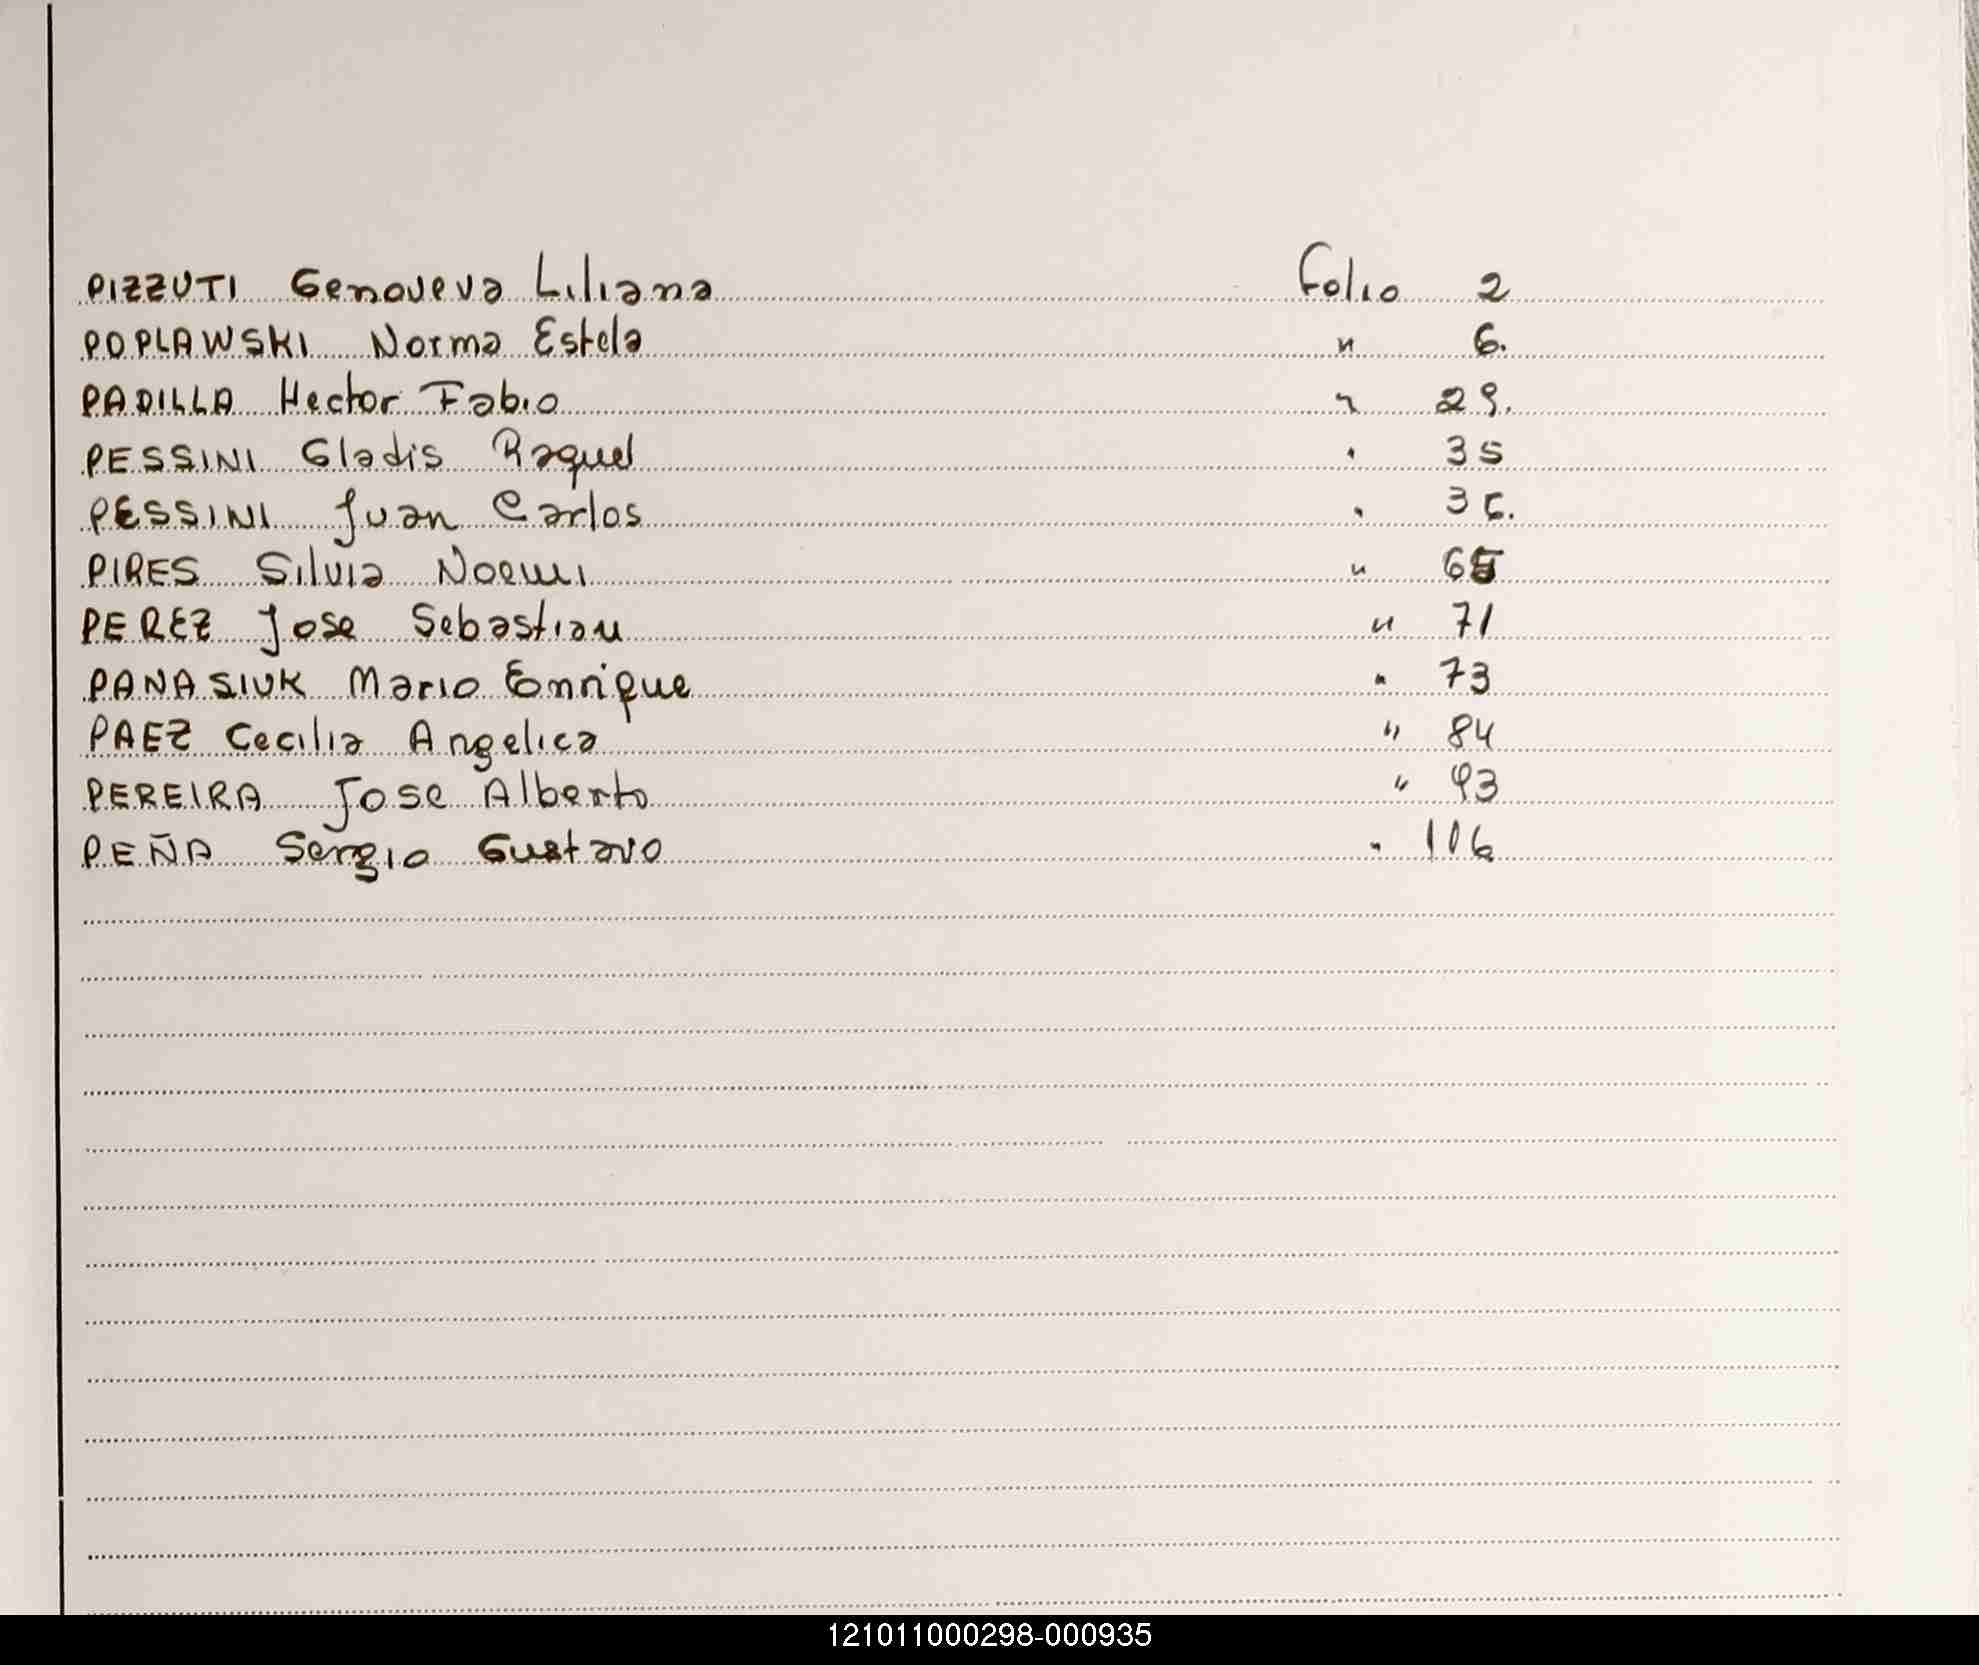 PIZZUTI Genoveva Liliana Folio 2
POPLAWSKI Norma Estela " 6.
PADILLA Hector Fabio " 29.
PESSINI Gladis Raquel " 35
PESSINI Juan Carlos " 36.
PIRES Silvia Noemi "
PEREZ Jose Sebastian " 71
PANASIUK Mario Enrique " 73
PAEZ Cecilia Angelica " 84
PEREIRA Jose Alberto " 93
PEÑA Sergio Gustavo " 106
121011000298-000935